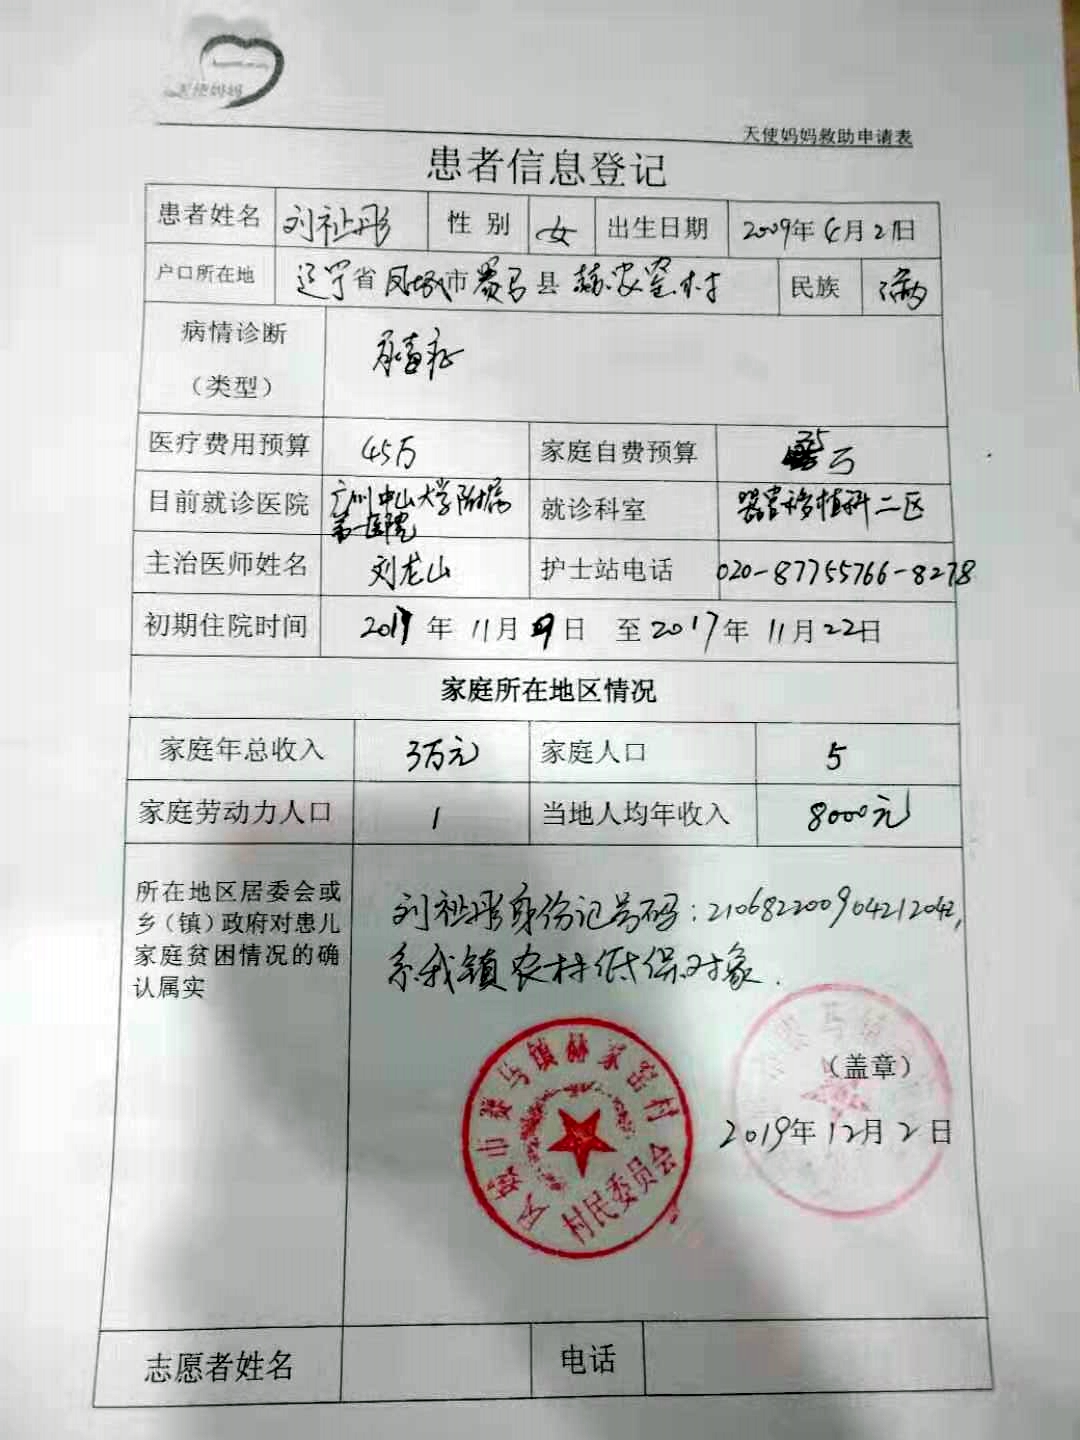 天使妈妈
天使妈妈救助申请表
患者信息登记
患者姓名 刘祉彤 性 别 女 出生日期 2009年4月21日
户口所在地 辽宁省凤城市赛马县赫家窑村 民族 满
病情诊断 尿毒症
（类型）
医疗费用预算 45万 家庭自费预算 35万
目前就诊医院 广州中山大学附属 就诊科室 器官移植科二区
第一医院
主治医师姓名 刘龙山 护士站电话 020-87755766-8278
初期住院时间 2017年11月9日 至2017年11月22日
家庭所在地区情况
家庭年总收入 3万元 家庭人口 5
家庭劳动力人口 1 当地人均年收入 8000元
所在地区居委会或
乡（镇）政府对患儿
家庭贫困情况的确
认属实
刘祉彤身份证号码：210682200904212042，
系我镇农村低保对象.
凤城市赛马镇赫家窑村
村民委员会
（盖章）
2019年12月2日
志愿者姓名 电话